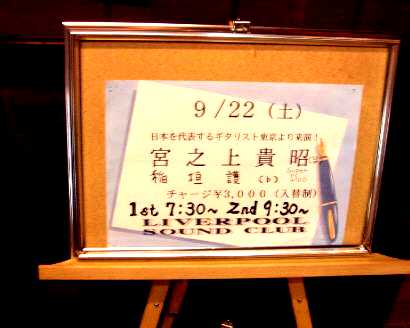 9/22(土)
日本を代表するギタリスト東京より来演!
宮之上貴昭(g)
稲垣護(b)
チャージ¥3,000(入替制)
1st 7:30~ 2nd 9:30~
LIVERPOOL
SOUND CLUB